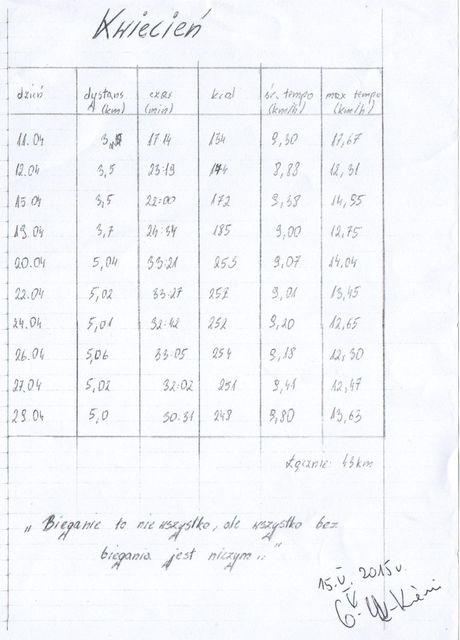 Kwiecień
dzień dystans (km) czas (min) kcal śr. tempo (km/h) max tempo (km/h)
11.04 17:14 134 9,30 17,67
12.04 3,5 23:19 174 8,88 12,31
15.04 3,5 22:00 172 9,38 14,95
19.04 3,7 24:34 185 9,00 12,75
20.04 5,04 33:21 253 9,07 14,04
22.04 5,02 33:27 252 9,01 13,45
24.04 5,01 32:42 252 9,20 12,65
26.04 5,06 33:05 254 9,18 12,30
27.04 5,02 32:02 251 9,41 12,47
29.04 5,0 30:31 248 9,80 13,63
Łącznie: 43km
„ Bieganie to nie wszystko, ale wszystko bez
biegania jest niczym.."
15.V. 2015r.